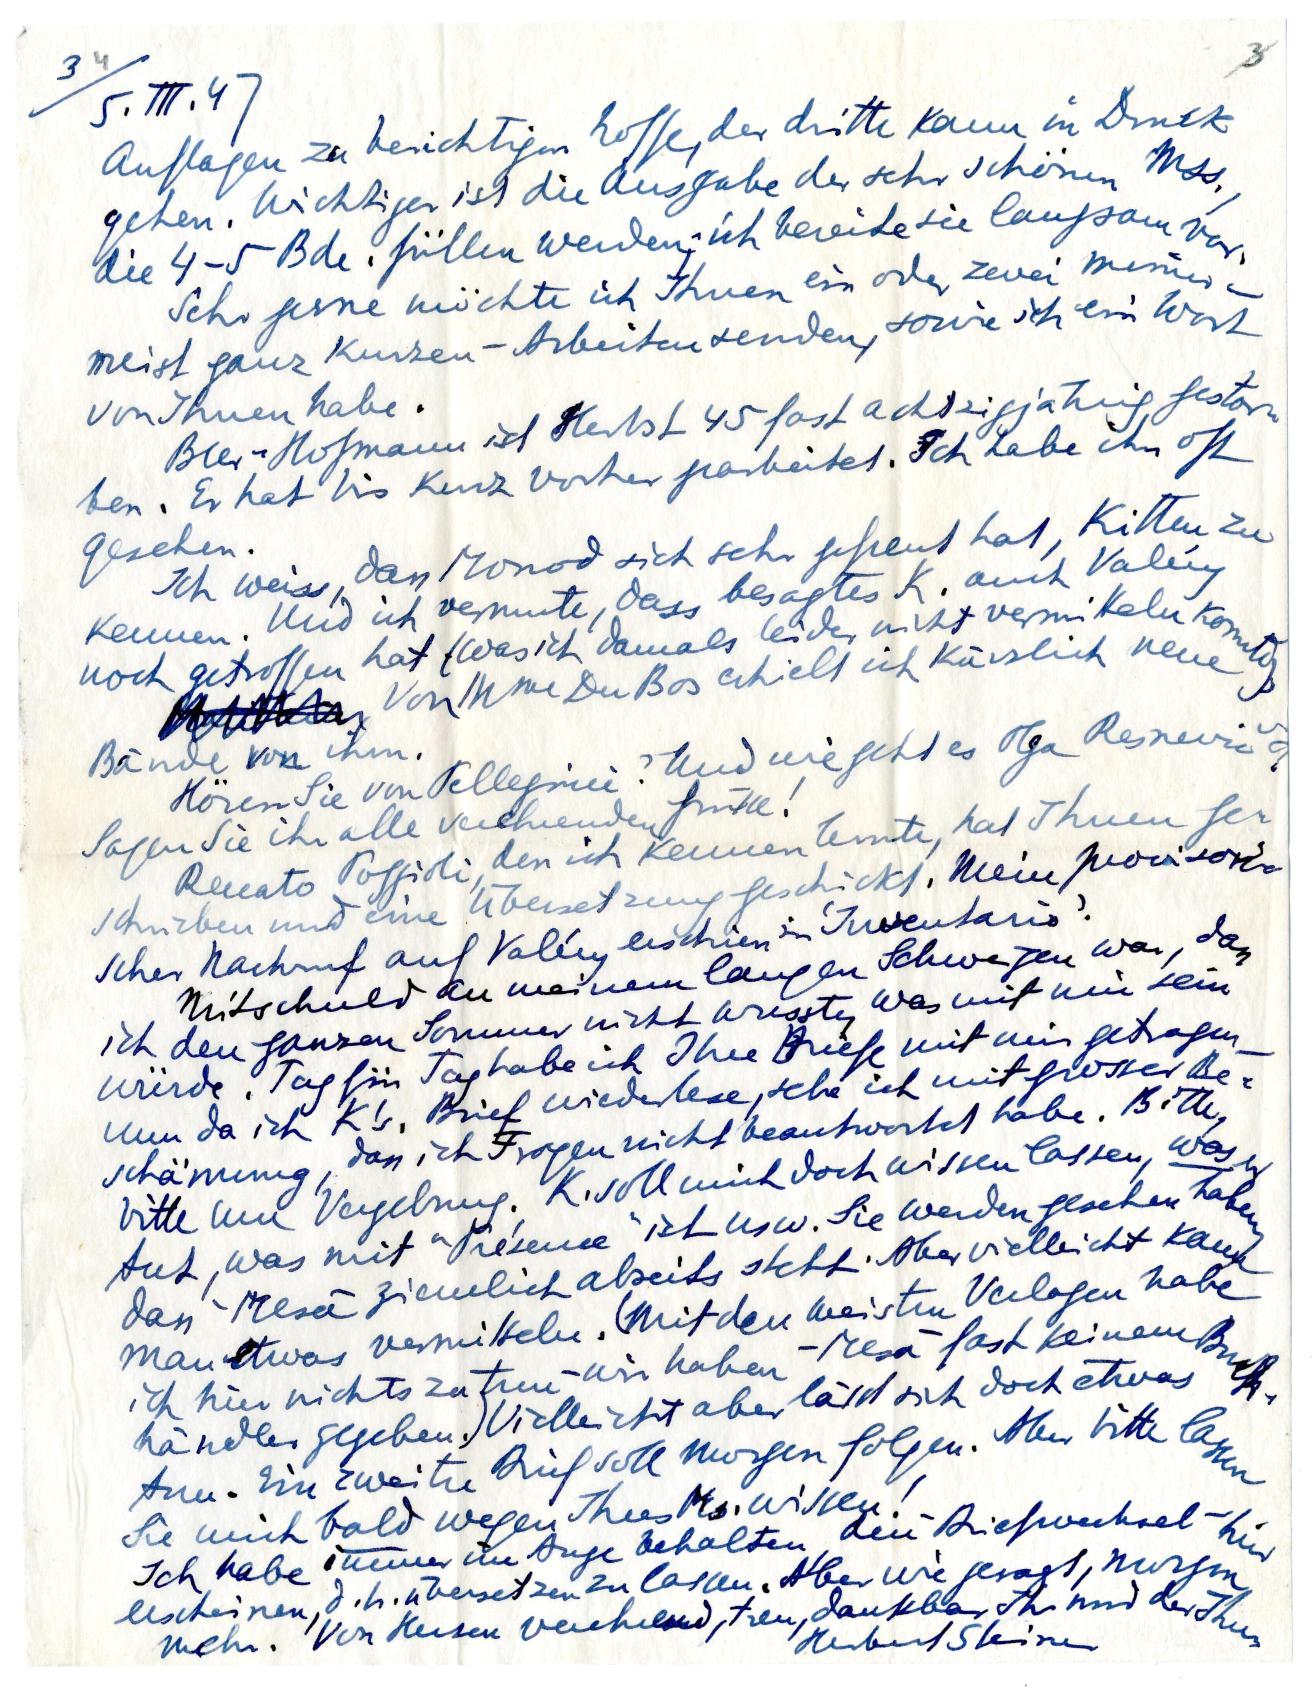 3 4
3
5. III. 47
Auflagen zu berichtigen hoffe, der dritte kann in Druck
gehen. Wichtiger ist die Ausgabe der sehr schönen Mss.,
die 4-5 Bde. füllen werden; ich bereite sie langsam vor.
Sehr gerne möchte ich Ihnen ein oder zwei meiner -
meist ganz kurzen - Arbeiten senden, sowie ich ein Wort
von Ihnen habe.
Beer-Hofmann ist Herbst 45 fast achtzigjährig gestor-
ben. Er hat bis kurz vorher gearbeitet. Ich habe ihn oft
gesehen.
Ich weiss, dass Monod sich sehr gefreut hat, Kitten zu
kennen. Und ich vermute, dass besagtes K. auch Valéry
noch getroffen hat (was ich damals leider nicht vermitteln konnte).
Von Mme Du Bos erhielt ich kürzlich neue
Bände von ihm.
Hören Sie von Pellegrini? Und wie geht es Olga Resnevic
Sagen Sie ihr alle verehrenden Grüsse!
Renato Poggioli, den ich kennen lernte, hat Ihnen ge-
schrieben und eine Übersetzung geschickt. Mein provisori-
scher Nachruf auf Valéry erschien in 'Inventario'.
Mitschuld an meinem langen Schweigen war, dass
ich den ganzen Sommer nicht wusste, was mit mir sein
würde. Tag für Tag habe ich Ihre Briefe mit mir getragen -
nun da ich K's. Brief wiederlese, sehe ich mit grosser Be-
schämung, dass ich Fragen nicht beantwortet habe. Bitte,
bitte um Vergebung. K. soll mich doch wissen lassen, was er
tut, was mit "Présence" ist usw. Sie werden gesehen haben,
dass - Mesa ziemlich abseits steht. Aber vielleicht kann
man etwas vermitteln. (Mit den meisten Verlagen habe
ich hier nichts zu tun - wir haben - Mesa fast keinem Buch-
händler gegeben.) Vielleicht aber lässt sich doch etwas
tun. Ein zweiter Brief soll morgen folgen. Aber bitte lassen
Sie mich bald wegen Ihres Ms. wissen!
Ich habe immer im Auge behalten, den Briefwechsel - hier
erscheinen, d.h. übersetzen zu lassen. Aber wie gesagt, morgen
mehr. Von Herzen verehrend, treu, dankbar Ihr und der Ihren
Herbert Steiner